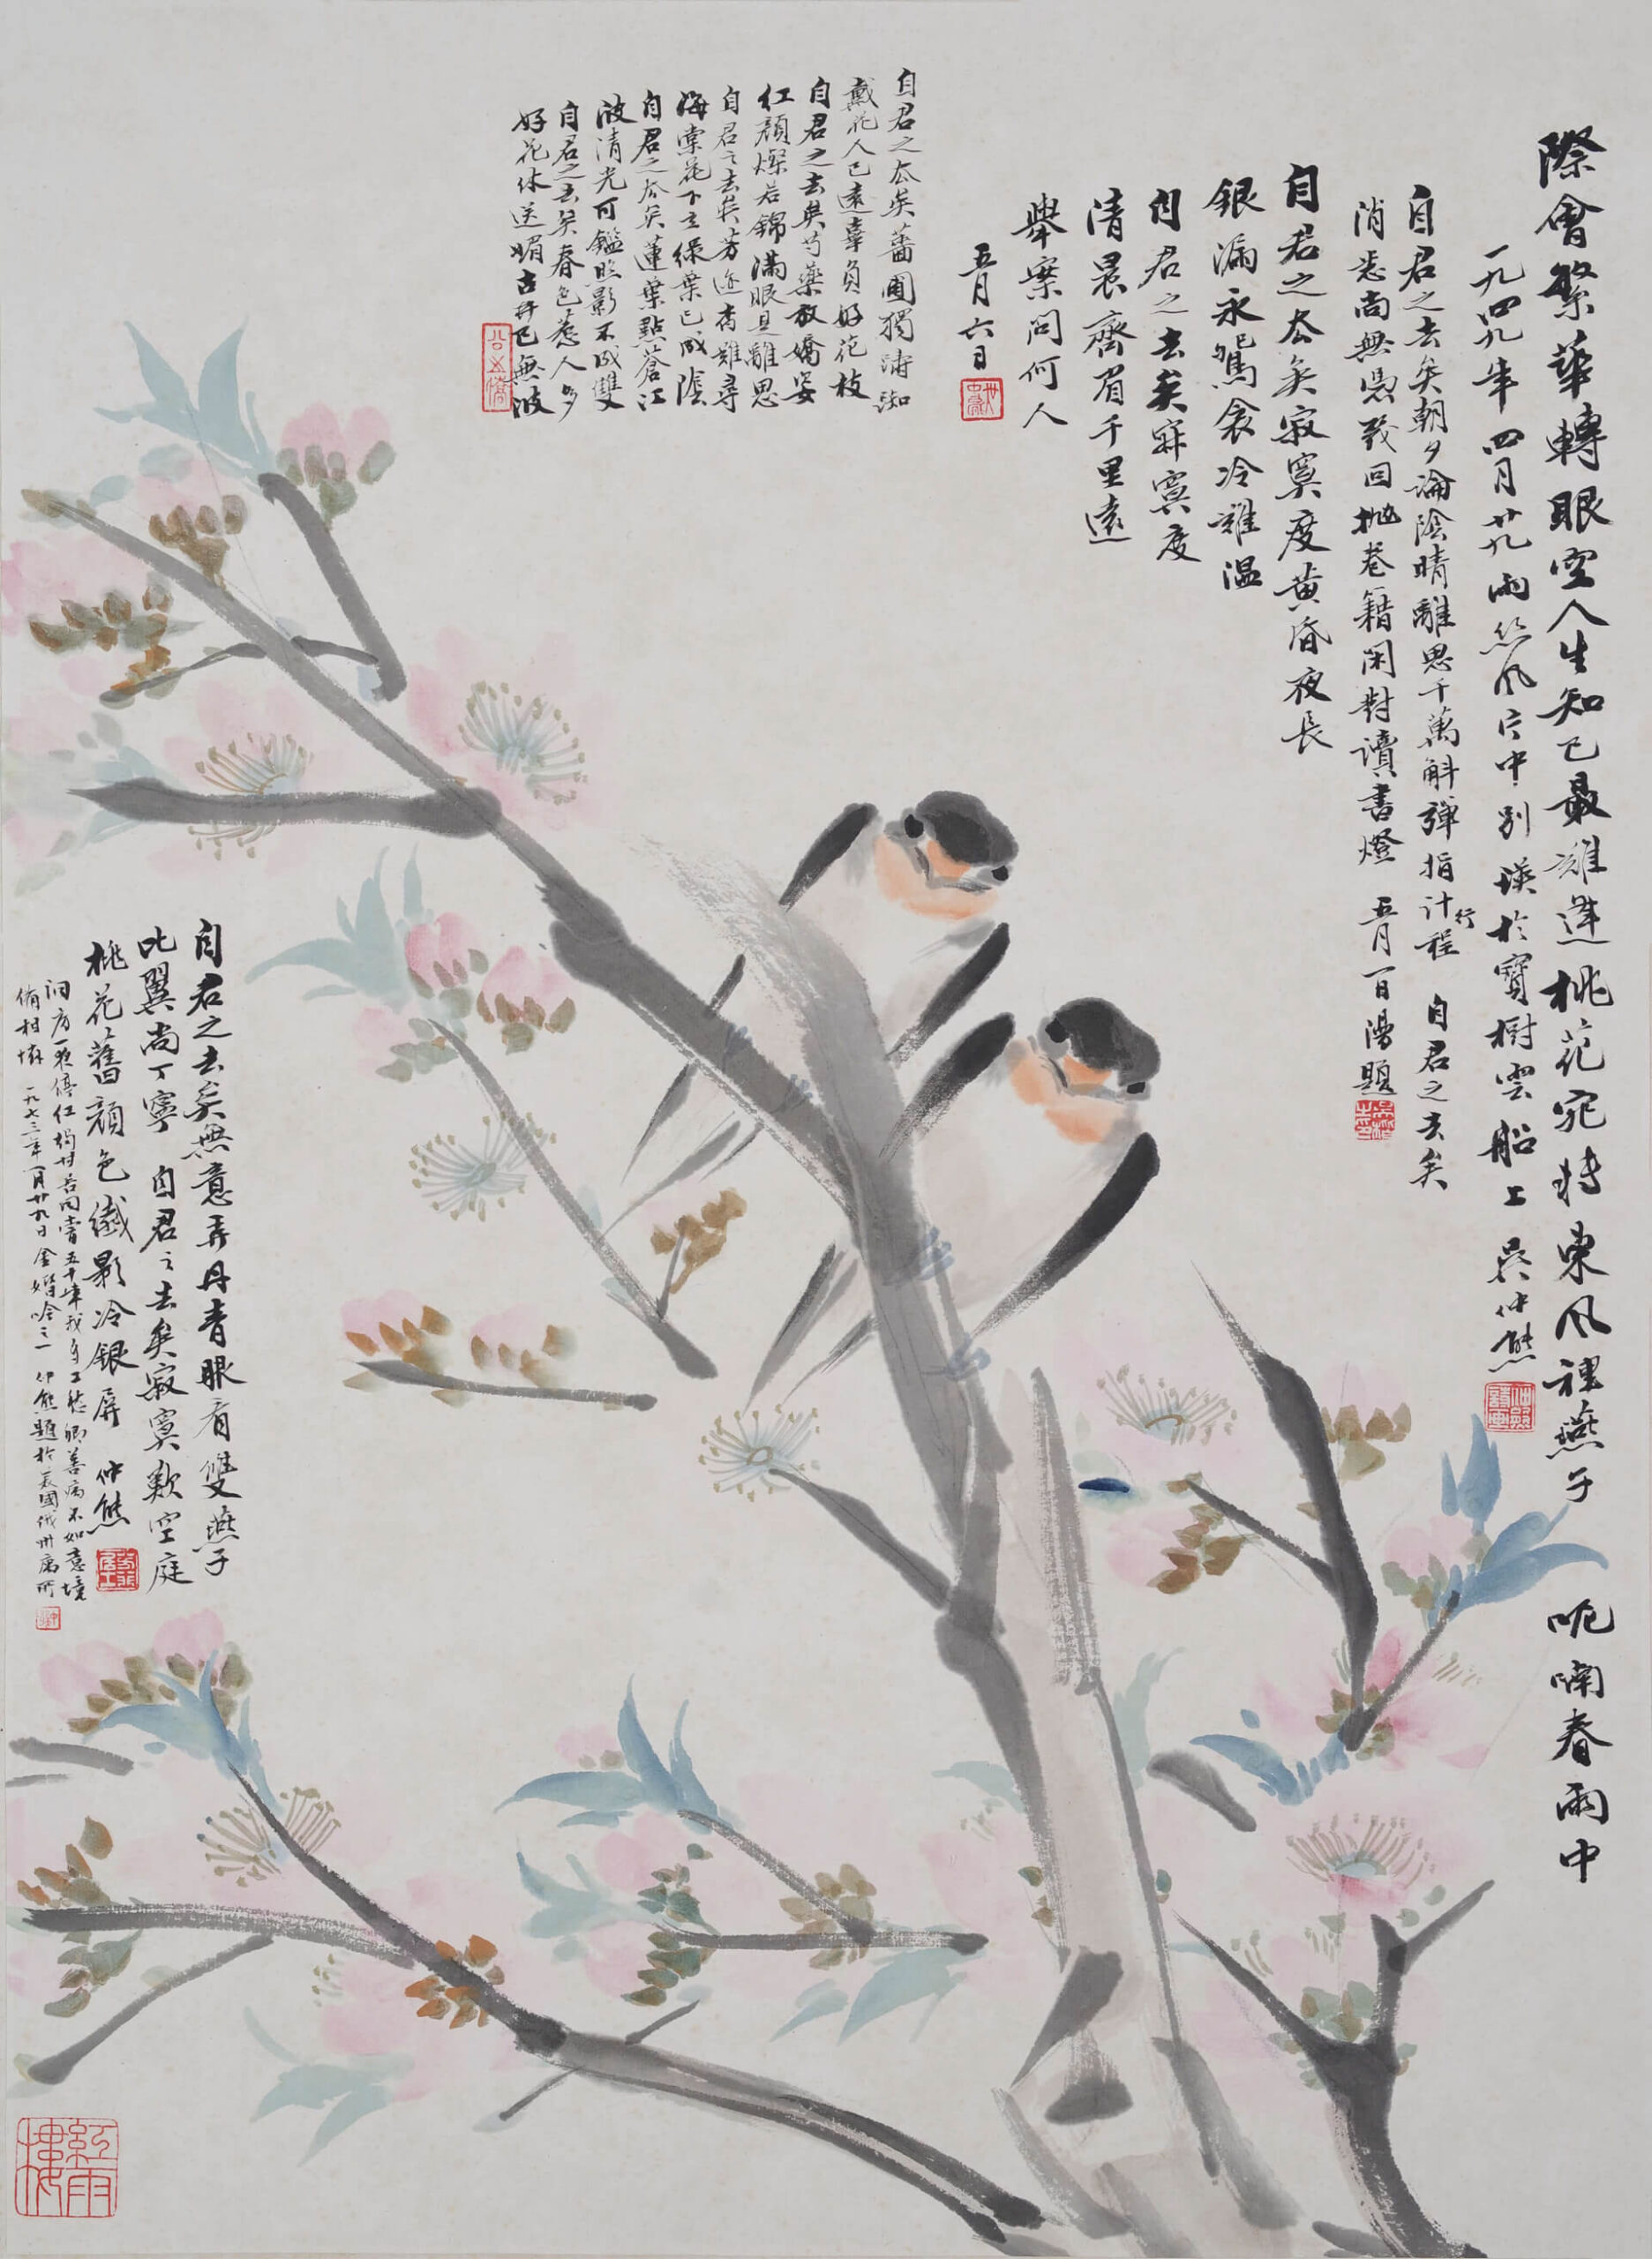 際會繁華轉眼空人生知己最難逢桃花宛轉東風裡燕子呢喃春雨中
一九四九年四月廿九雨絲風片中別瑛於寶樹雲船上吳仲熊
自君之去矣朝夕論陰晴離思千萬斛彈指計行程 自君之去矣
消息尚無憑幾回拋卷籍閑對讀書燈 五月一日漫題
自君之去矣寂寞度黃昏夜長
銀漏永鴛衾冷難溫
自君之去矣寂寞度
清晨齊眉千里遠
舉案問何人
五月六日
自君之去矣薔圃獨
戴花人已遠辜負好花枝
自君之去矣芍藥放嬌姿
紅顏燦若錦滿眼是離思
自君之去矣芳迹杳難尋
海棠花下立綠葉已成陰
自君之去矣蓮葉點蒼江
波清光可鑑照影不成雙
自君之去矣春色惹人多
好花休送媚古井已無波
自君之去矣無意弄丹青眼看雙燕子
比翼尚丁寧 自君之去矣寂寞歎空庭
桃花舊顏色纖影冷銀屏 仲熊
洞房一夜停紅燭甘苦同嘗五十年我自工愁卿善病不如意境
一九七三年一月廿九日金婚吟之一 仲熊題於美國
紅雨樓